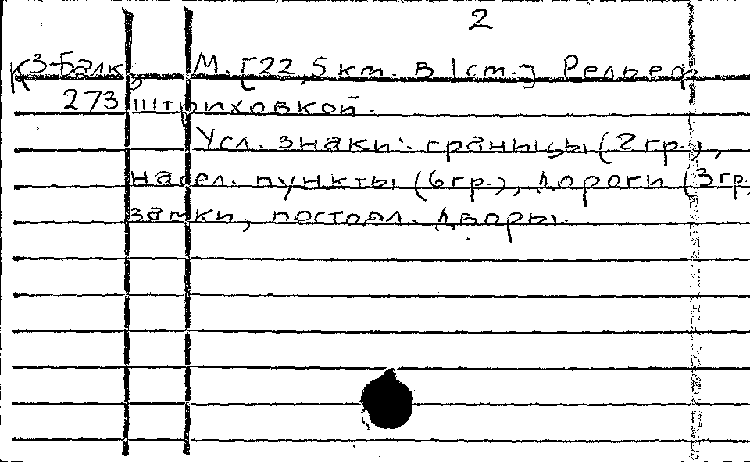 2
К3-Балк, М. [22,5 km. в 1 cm.] Рельеф
273 штриховкой.
Усл. знаки: границы (2 гр.),
насел. пункты (6 гр.), дороги (3 гр.
замки, постоял. дворы.